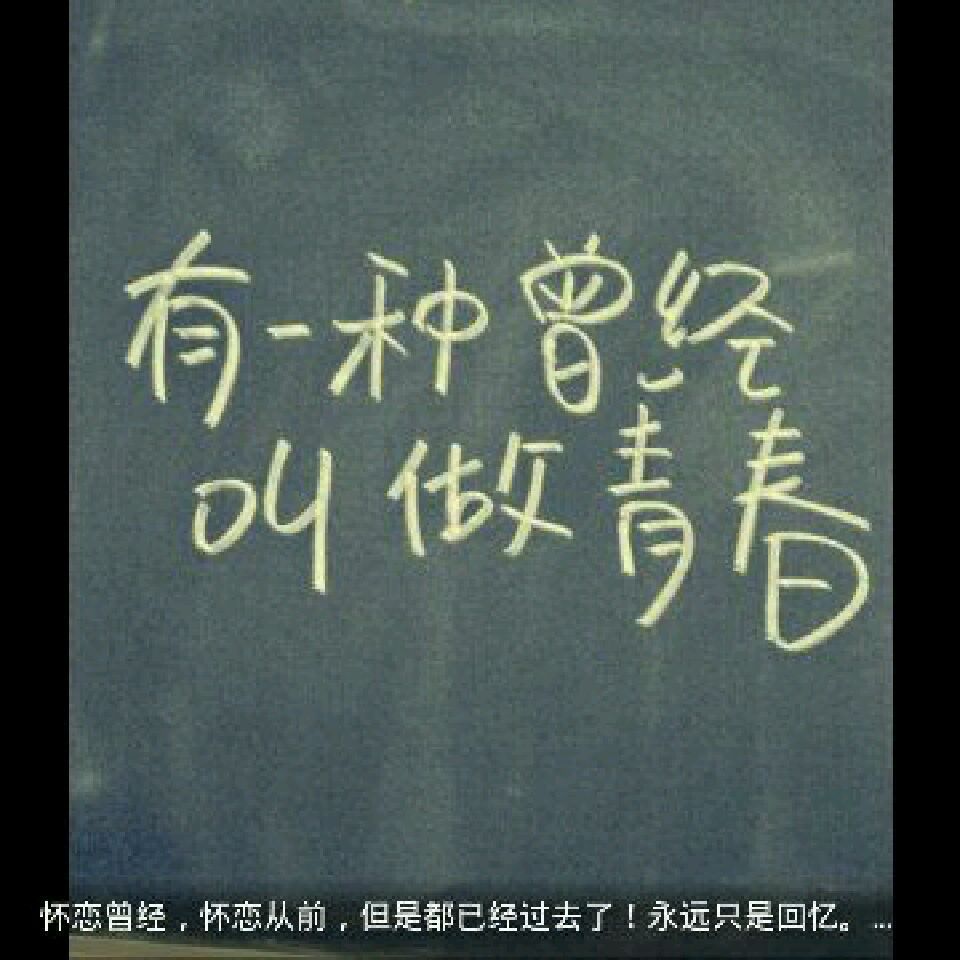 有一种曾经
叫做青春
怀恋曾经，怀恋从前，但是都已经过去了！永远只是回忆。...